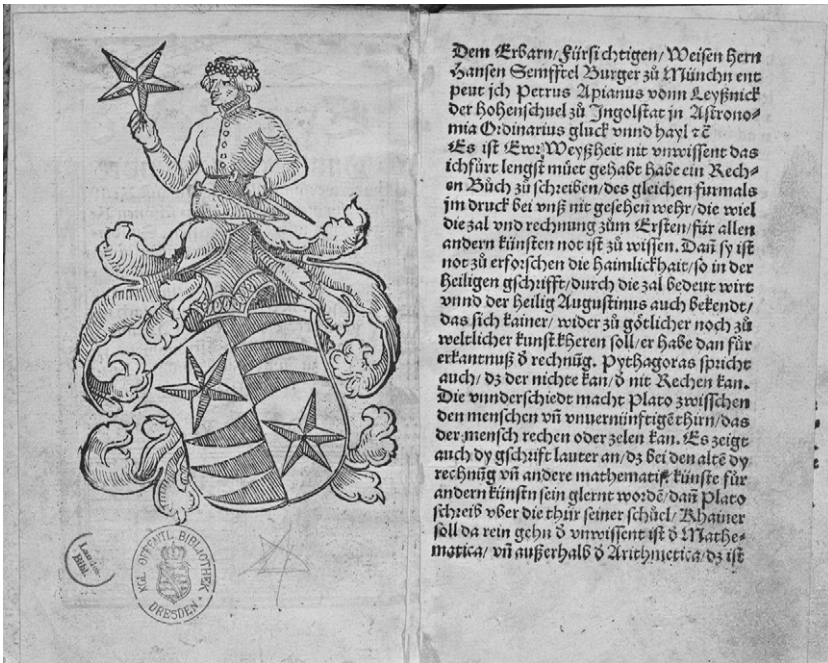 KGL. OEFFENTL. BIBLIOTHEK
DRESDEN
Dem Erbarn/Fürsichtigen/Weisen Hern
Hansen Semfftel Burger zů Münchn ent
peut jch Petrus Apianus vonn Leyßnick
der hohenschuel zů Jngolstat jn Astrono⸗
mia Ordinarius gluck vnnd hayl ⁊c̄
Es ist Ewr Weyßheit nit vnwissent das
ich fürt lengst můet gehabt habe ein Rech⸗
en Bůch zů schreiben/des gleichen furmals
jm druck bei vnß nit gesehen wehr/die wiel
die zal vnd rechnung zům Ersten/für allen
andern künsten not ist zů wissen. Dañ sy ist
not zů erforschen die haimlickhait/so in der
Heiligen gschrifft/durch die zal bedeut wirt
vnnd der heilig Augustinus auch bekendt/
das sich kainer/wider zů götlicher noch zů
weltlicher kunst kheren soll/er habe dan für
erkantnuß d̄ rechnūg. Pythagoras spricht
auch/dz der nichte kan/d̄ nit Rechen kan.
Die vnnderschiedt macht Plato zwisschen
den menschen vñ vnuernünftigē thirn/das
der mensch rechen oder zelen kan. Es zeigt
auch dy gschrift lauter an/dz bei den altē dy
rechnūg vñ andere mathematis. künste für
andern künstn sein glernt wordē/dañ Plato
schreib vber die thür seiner schůel/Khainer
soll da rein gehn d̄ vnwissent ist d̄ Mathe⸗
matica/vñ außerhalb d̄ Arithmetica/dz ist